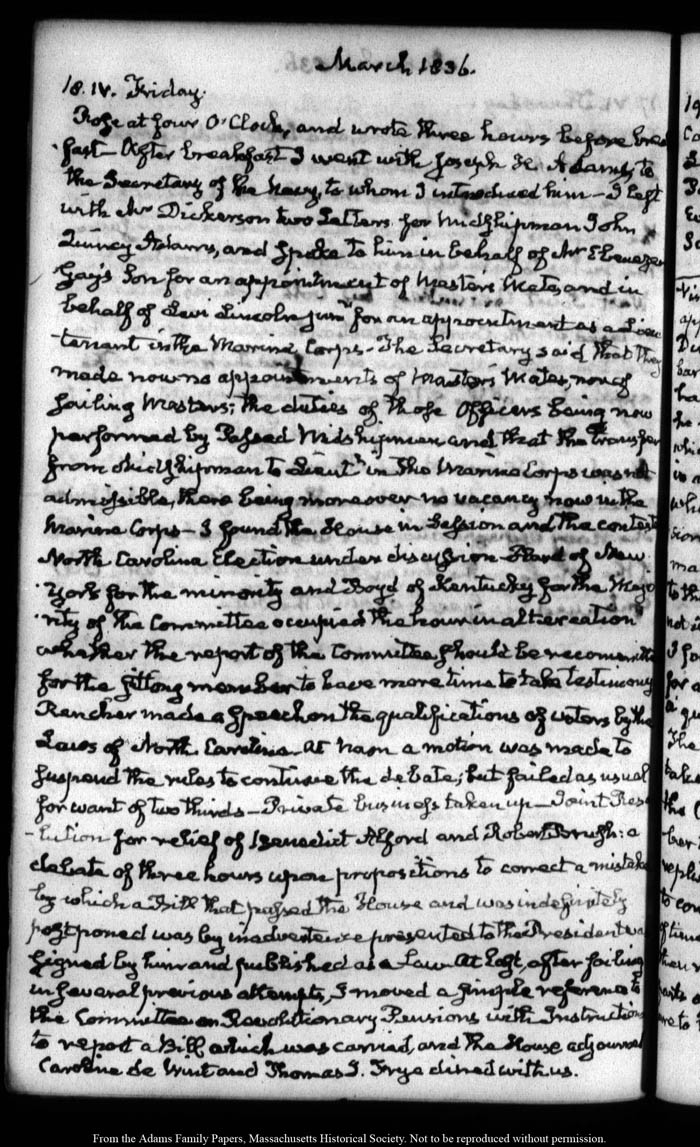 March 1836.
18. IV. Friday.
Rose at four O'Clock, and wrote three hours before break
fast – After breakfast I went with Joseph H. Adams, to
the Secretary of the Navy, to whom I introduced him – I left
with Mr Dickerson two Letters for Midshipman John
Quincy Adams, and spoke to him in behalf of Mr Ebenezer
Gay's Son for an appointment of Masters Mate, and in
behalf of Levi Lincoln junr for an appointment as a Lieu
tenant in the Marine Corps – The Secretary said that they
made now no appointments of Masters Mates, nor of
Sailing Masters; the duties of those Officers being now
performed by Passed Midshipmen and that the transfer
from Midshipman to Lieutt in the Marine Corps was not
admissible, there being moreover no vacancy now in the
Marine Corps – I found the House in Session and the contested
North Carolina Election under discussion – Hard of New
York for the minority and Boyd of Kentucky for the Majo
rity of the Committee occupied the hour in altercation
whether the report of the Committee should be recommitted
for the sitting member to have more time to take testimony
Rencher made a speech on the qualifications of voters by the
Laws of North Carolina – At noon a motion was made to
suspend the rules to continue the debate; but failed as usual
for want of two thirds – Private business taken up – Joint Reso
-lution for relief of Benedict Alford and Robert Brush: a
debate of three hours upon propositions to correct a mistake
by which a Bill that passed the House and was indefinitely
postponed was by inadvertence presented to the President was
signed by him and published as a Law. At last, after failing
in several previous attempts, I moved a simple reference to
the Committee on Revolutionary Pensions with Instructions
to report a Bill which was carried, and the House adjourned
Caroline de Wint and Thomas J. Frye dined with us.
From the Adams Family Papers, Massachusetts Historical Society. Not to be reproduced without permission.